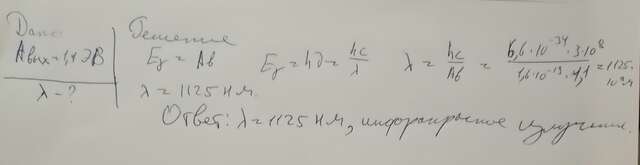 Дано
Aвых = 1,1 эВ
λ - ?
Решение
Eγ = Aв Eγ = hν = hc/λ λ = hc/Aв = 6,6·10⁻³⁴·3·10⁸/1,6·10⁻¹⁹·1,1 = 1125·10⁻⁹м
λ = 1125 нм.
Ответ: λ = 1125 нм, инфракрасное излучение.